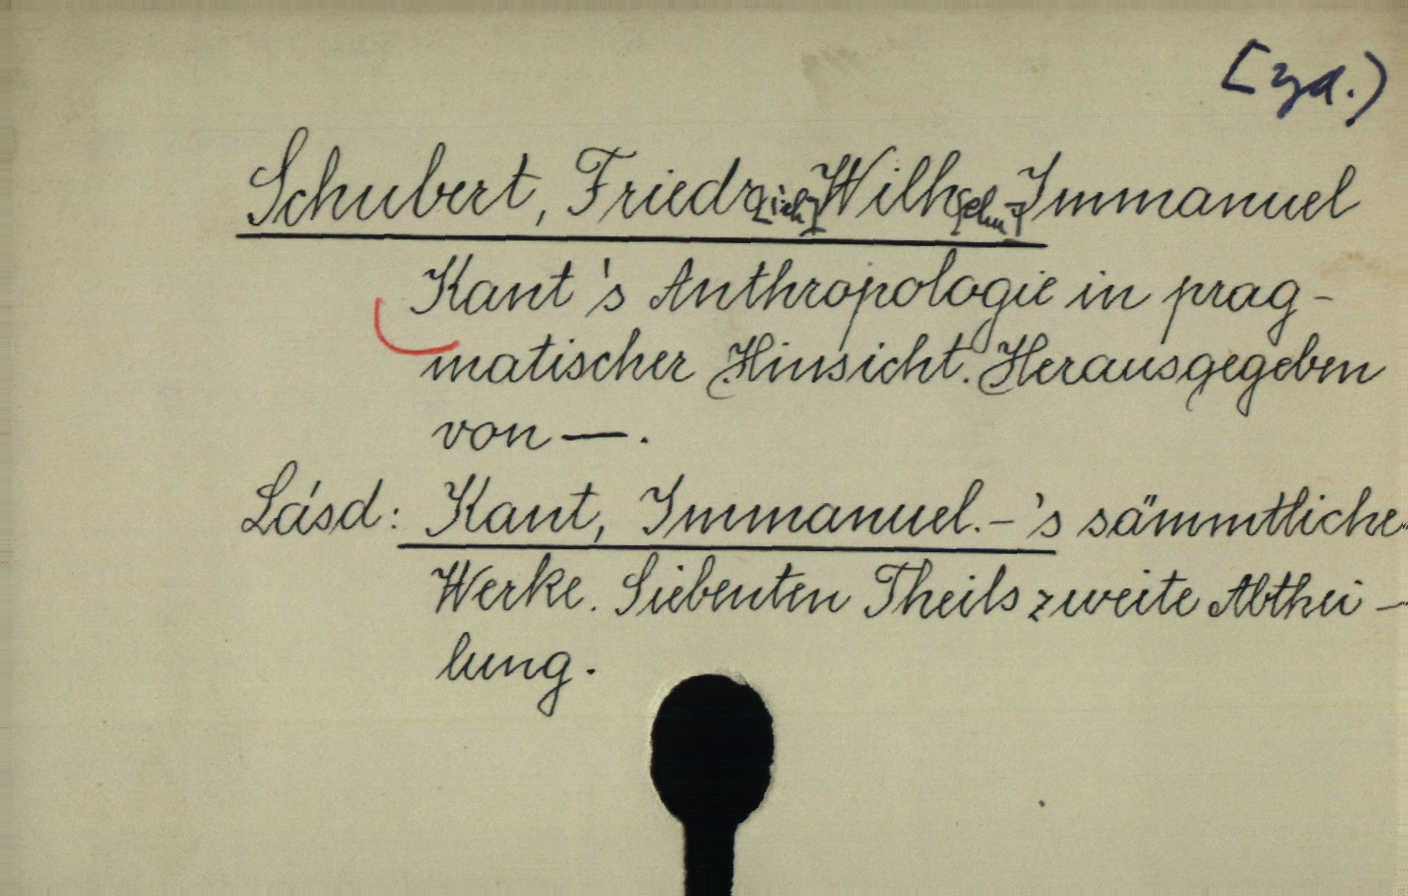 Schubert, Friedr[ich] Wilh[elm] Immanuel
Kant's Anthropologie in prag-
matischer Hinsicht. Herausgegeben
von —.
Lásd: Kant, Immanuel. – 's sämmtliche
Werke. Siebenten Theils zweite Abthei-
lung.